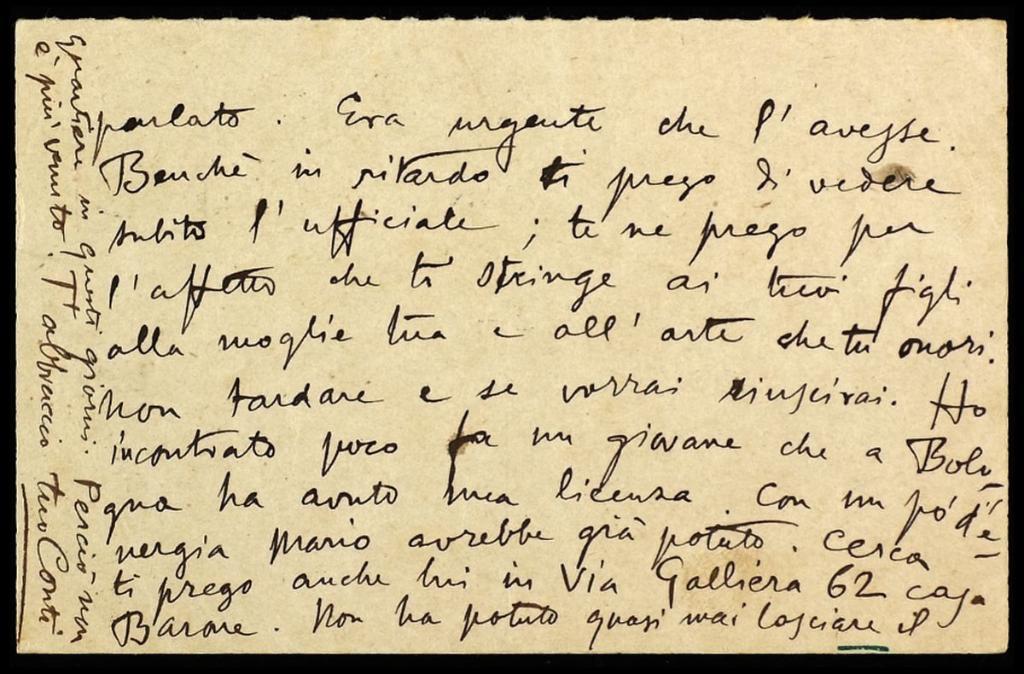 parlato. Era urgente che l'avesse.
Benchè in ritardo ti prego di vedere
subito l'ufficiale; te ne prego per
l'affetto che ti stringe ai tuoi figli
alla moglie tua e all'arte che tu onori.
Non tardare e se vorrai riuscirai. Ho
incontrato poco fa un giovane che a Bolo-
gna ha avuto una licenza. Con un pó d'e-
nergia Mario avrebbe già potuto. Cerca
ti prego anche lui in Via Galliera 62 casa
Barone. Non ha potuto quasi mai lasciare il
quartiere in questi giorni. Perciò non
è più venuto. Ti abbraccio tuo Conti